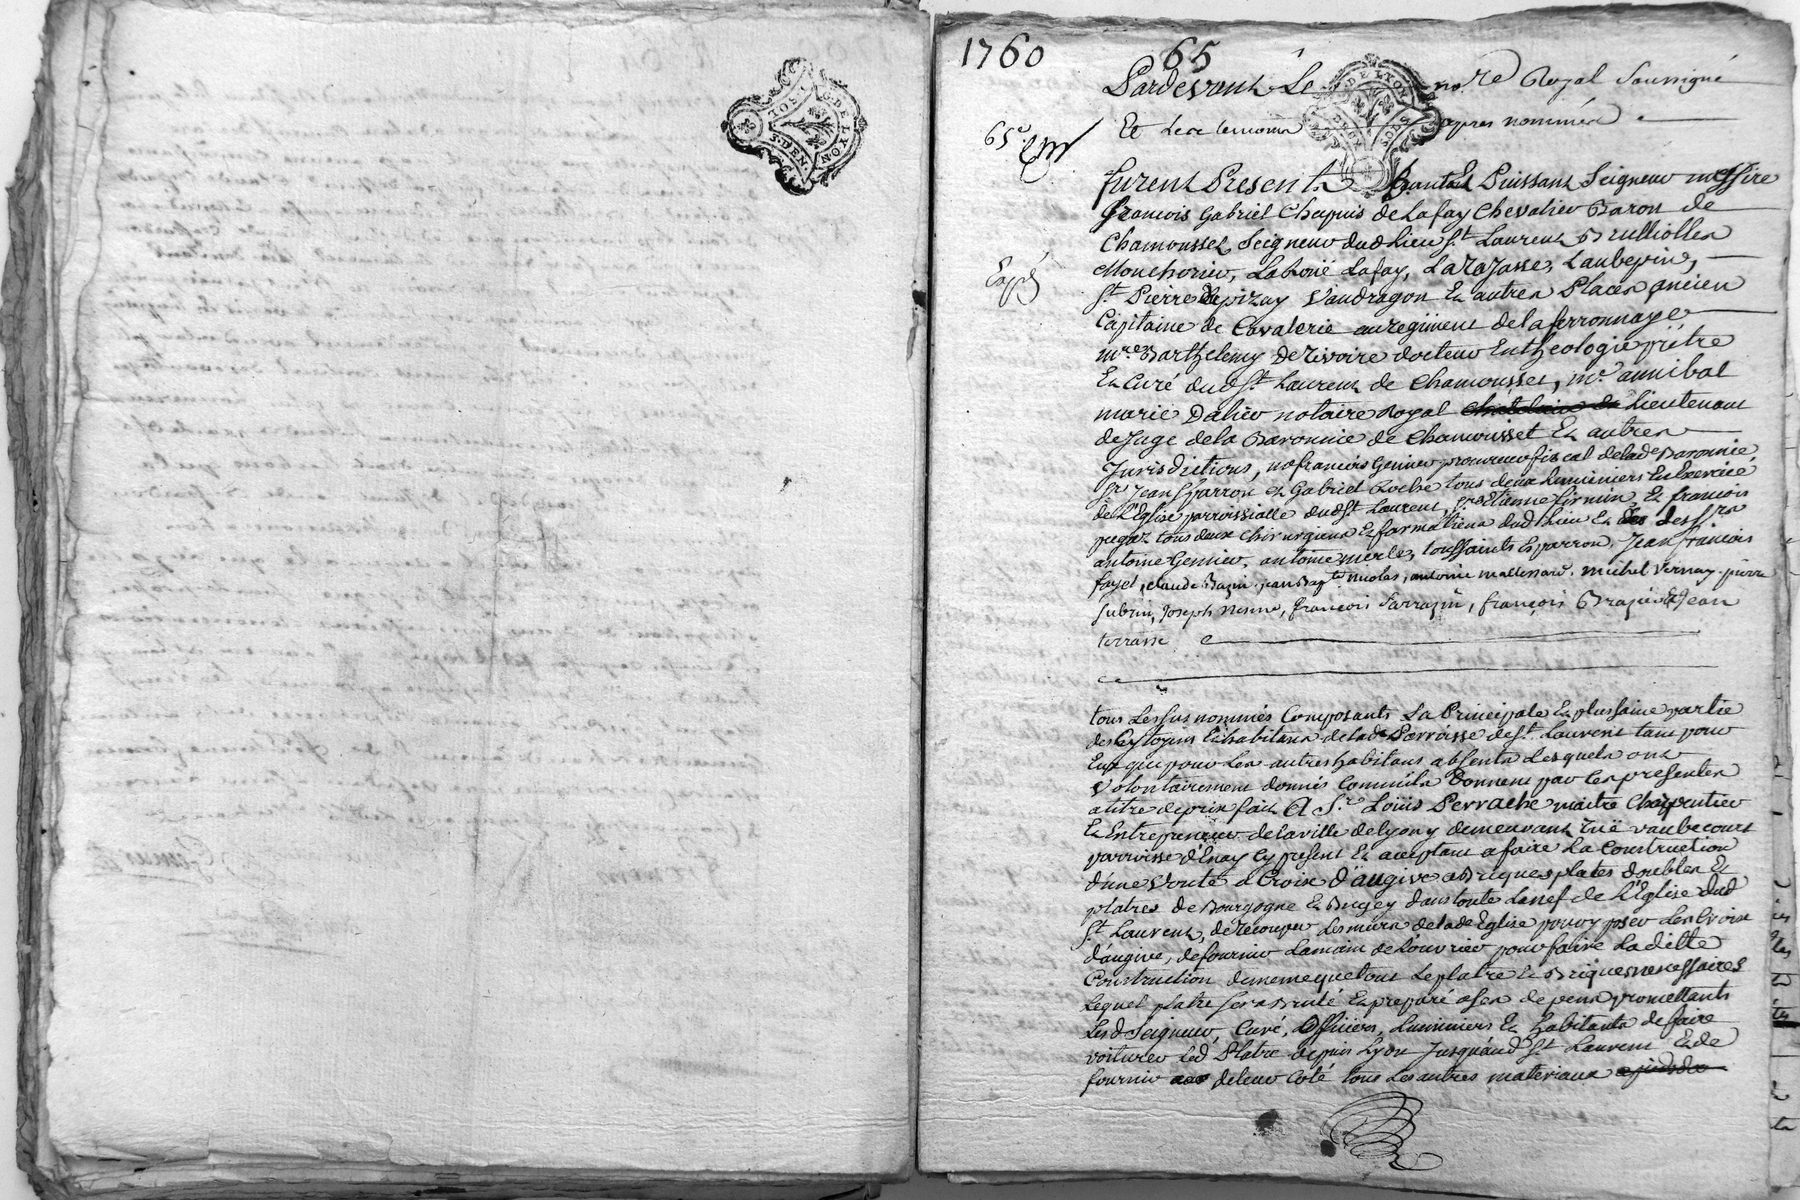 G. DE LYON
1760 65
Pardevant Le no.re Royal soussigné
65e
Et Les temoins apres nommés
furent Presents hautet Puissant Seigneur messire
françois Gabriel Chapuis de Lafay Chevalier Baron de
Chamousset, Seigneur dud Lieu St Laurent Brulliolles
Monchorier, La Roüe Lafay, Larajasse, Laubepin,
Expé
St Pierre Depizay Vaudragon Et autres Places ancien
Capitaine de Cavalerie au regiment de la ferronnaye
mre Barthelemy De Rivoire docteur En theologie prêtre
Et Curé dud St Laurent de Chamousset, me annibal
marie Dalier notaire Royal Chatelain et Lieutenant
de Juge de la Baronnie de Chamousset Et autres
Jurisdictions, me françois Genier procureur fiscal de lade Baronnie,
Sr Jean Sparron et Gabriel Roche tous deux Luminiers En Exercice
de L'Eglise parroissialle dud St Laurent, Srs Etienne firmin Et françois
pegaz tous deux chirurgiens Et farmatiens dud Lieu Et des Srs
antoine Genier, antoine merle, toussaints Esparron, Jean françois
fayet, claude Bazin, jean Bapte nicolas, antoine mallenard, michel Vernay, pierre
Subrin, Joseph nesme, françois Sarrazin, françois Brazier Et Jean
terrasse
tous Lessus nommés Composants La Principale Et plus saine partie
des Cytoyens Et habitans de lade Parroisse de St Laurent tant pour
Eux que pour Les autres habitans absents Lesquels ont
Volontairement donnés Comme ils Donnent par Ces presentes
a titre de prix fait A Sr Loüis Perrache maitre Charpentier
Et Entrepreneur de la ville de Lyon y demeurant rüe vaubecourt
parroisse d'Enay Cy present Et acceptant a faire La Construction
d'une Voute a Croix d'augive a Briques plates doubles Et
platres de Bourgogne Et Bugey dans toute La nef de L'Eglise dud
St Laurent, de recouper Les murs de lade Eglise pour y poser Les Croix
d'augive, de fournir La main de L'ouvrier pour faire La ditte
Construction de meme que tout Le platre Et Briques necessaires
Lequel platre sera Bruté Et preparé a ses depens promettants
Lesd Seigneur, Curé, Officiers, Luminiers Et habitants de faire
voiturer Led Platre depuis Lyon Jusqu'aud St Laurent Et de
fournir de leur Coté tous Les autres materiaux